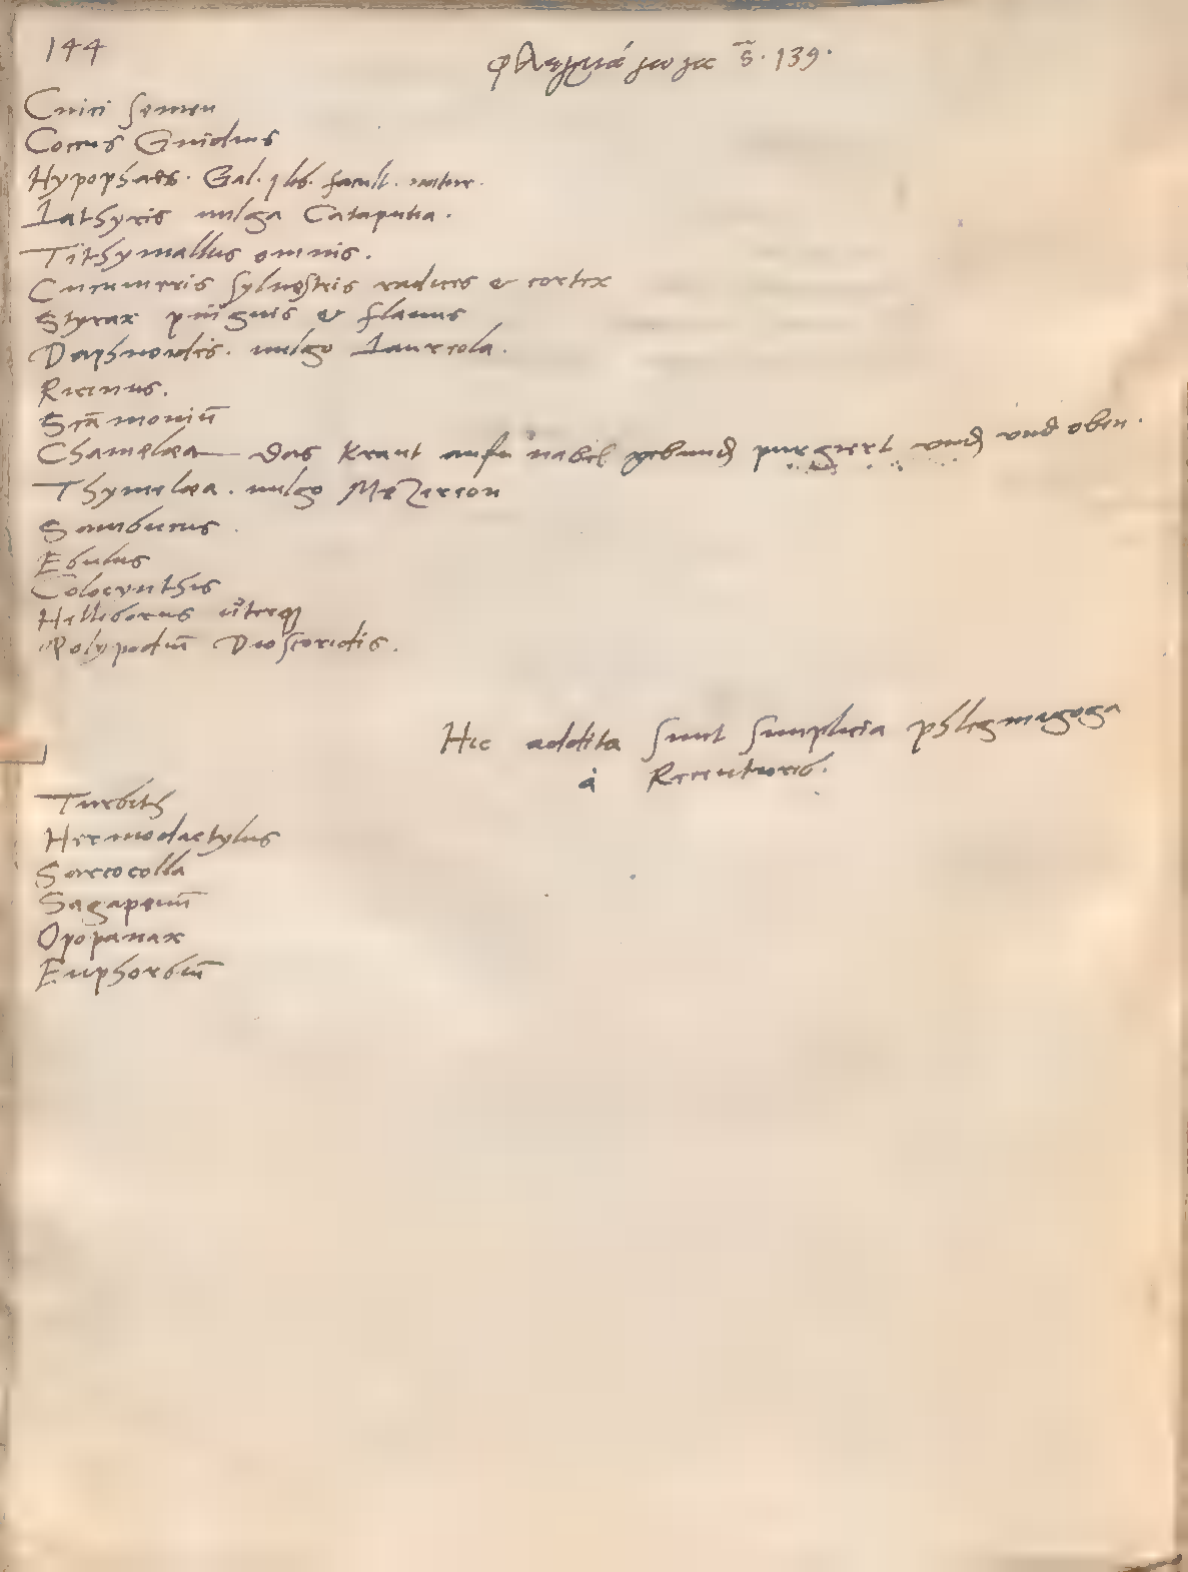 144
φλεγμάγωγα S. 139.
Cnici semen
Coccus Gnidius
Hypophaes. Gal. 1 lib. facult. natur.
Lathyris uulga Cataputia.
Tithymallus omnis.
Cucumeris syluestris radices & cortex
Styrax pinguis & flauus
Daphnoides. uulgo Laureola.
Ricinus.
Scāmoniū
Chamelæa — das kraut aufn nabel gebundē purgiert undē und oben.
Thymelæa. uulgo MeZereon
Sambucus.
Ebulus
Colocynthis
Helleborus uterq
Polypodiū Dioscoridis.
Hic addita sunt simplicia phlegmagoga
à Recentiorib.
Turbith
Hermodactylus
Sarcocolla
Sagapenū
Opopanax
Euphorbiū